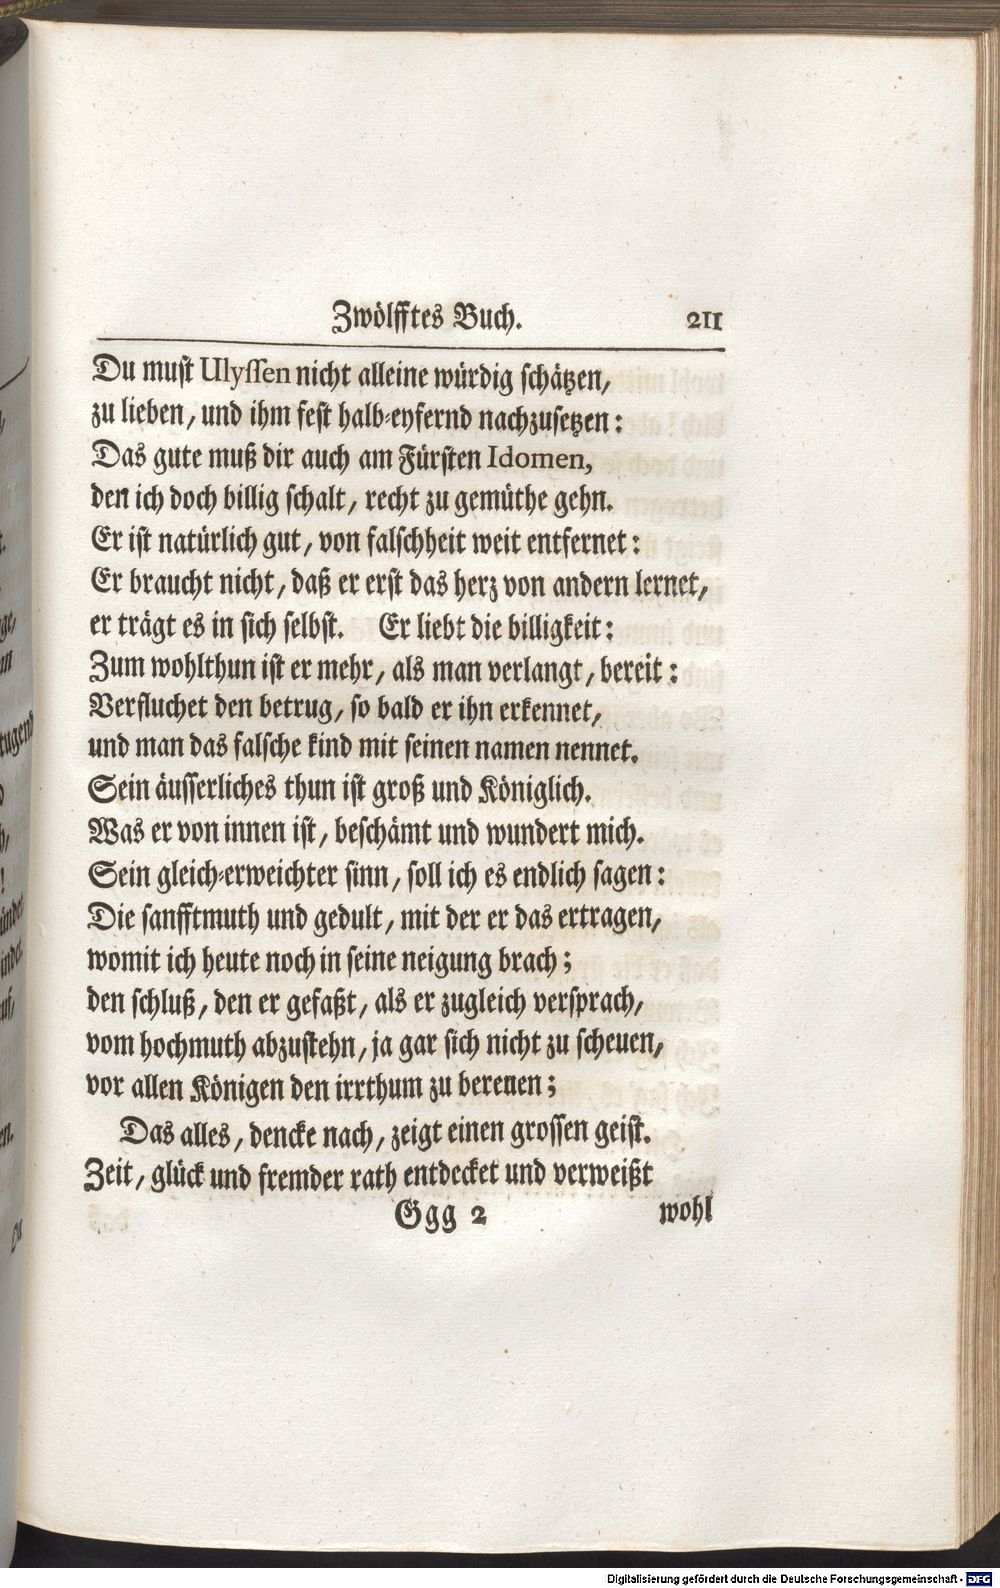 Zwölfftes Buch. 211
Du must Ulyssen nicht alleine würdig schätzen,
zu lieben, und ihm fest halb-eyfernd nachzusetzen:
Das gute muß dir auch am Fürsten Idomen,
den ich doch billig schalt, recht zu gemüthe gehn.
Er ist natürlich gut, von falschheit weit entfernet:
Er braucht nicht, daß er erst das herz von andern lernet,
er trägt es in sich selbst. Er liebt die billigkeit:
Zum wohlthun ist er mehr, als man verlangt, bereit:
Verfluchet den betrug, so bald er ihn erkennet,
und man das falsche kind mit seinen namen nennet.
Sein äusserliches thun ist groß und Königlich.
Was er von innen ist, beschämt und wundert mich.
Sein gleich-erweichter sinn, soll ich es endlich sagen:
Die sanfftmuth und gedult, mit der er das ertragen,
womit ich heute noch in seine neigung brach;
den schluß, den er gefaßt, als er zugleich versprach,
vom hochmuth abzustehn, ja gar sich nicht zu scheuen,
vor allen Königen den irrthum zu bereuen;
Das alles, dencke nach, zeigt einen grossen geist.
Zeit, glück und fremder rath entdecket und verweißt
Ggg 2 wohl
Digitalisierung gefördert durch die Deutsche Forschungsgemeinschaft - DFG